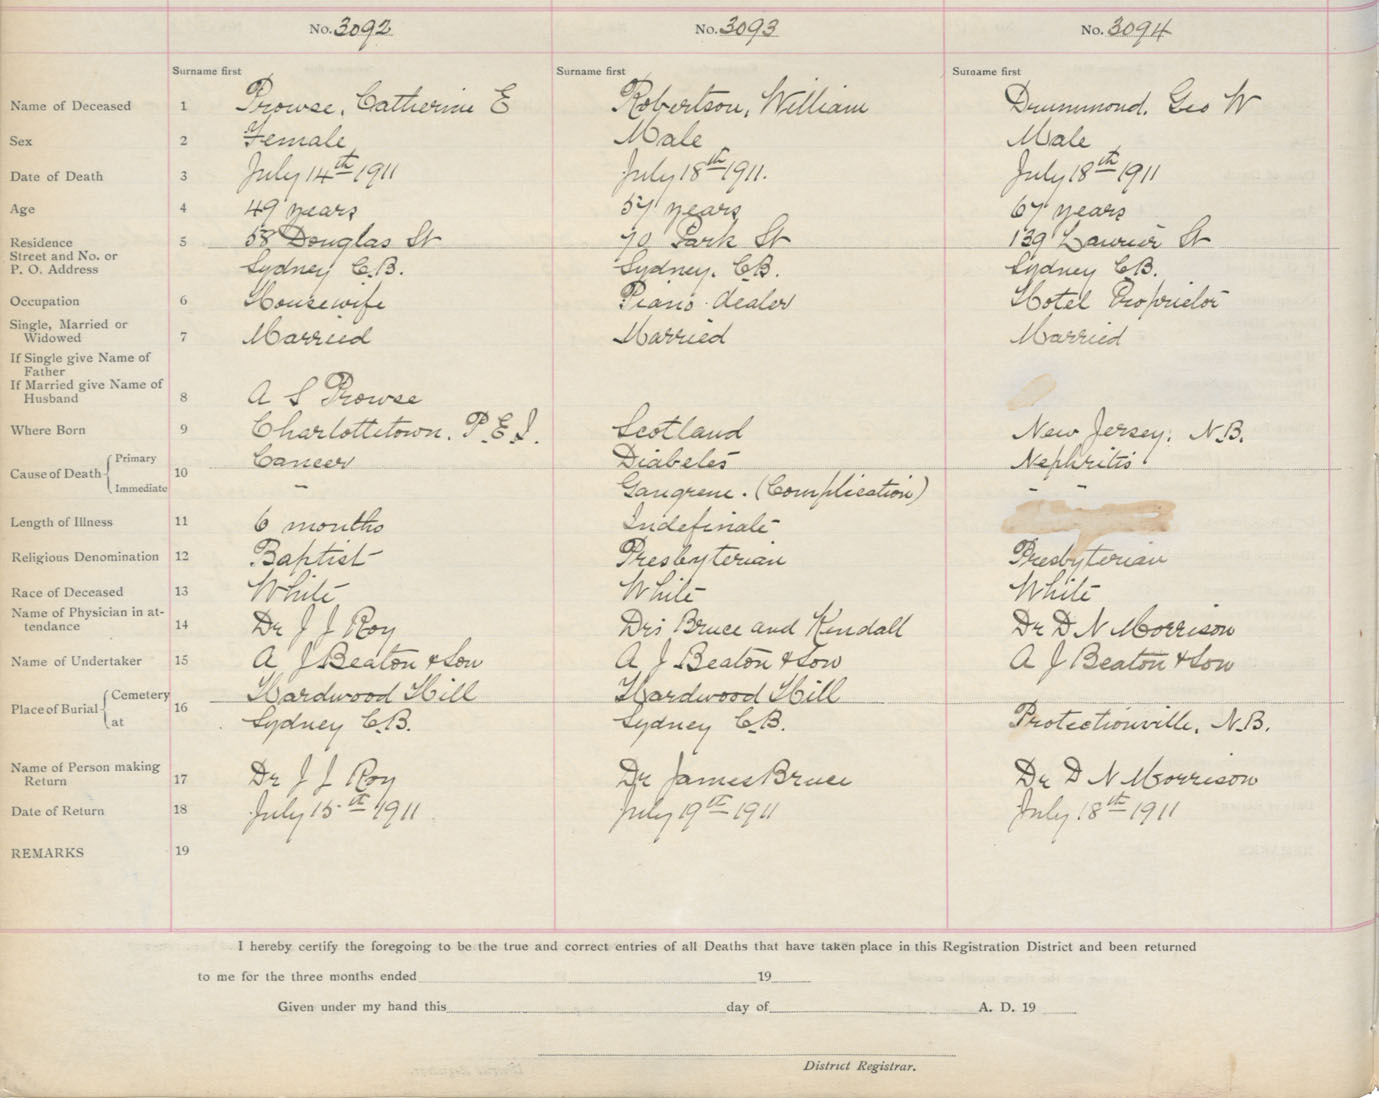 No. 3092 No. 3093 No. 3094
Surname first Surname first Surname first
Name of Deceased 1 Prowse, Catherine E Robertson, William Drummond, Geo W
Sex 2 Female Male Male
Date of Death 3 July 14th 1911 July 18th 1911. July 18th 1911
Age 4 49 years 57 years 67 years
Residence 5 58 Douglas St 70 Park St 139 Laurier St
Street and No. or
P. O. Address Sydney C.B. Sydney. C.B. Sydney C.B.
Occupation 6 Housewife Piano dealer Hotel Proprietor
Single, Married or
Widowed 7 Married Married Married
If Single give Name of
Father
If Married give Name of
Husband 8 A S Prowse
Where Born 9 Charlottetown. P.E.I. Scotland New Jersey. N.B.
Cause of Death Primary 10 Cancer Diabetes Nephritis
Immediate – Gangrene. (Complication) – –
Length of Illness 11 6 months Indefinate
Religious Denomination 12 Baptist Presbyterian Presbyterian
Race of Deceased 13 White White White
Name of Physician in at-
tendance 14 Dr J J Roy Drs Bruce and Kendall Dr D N Morrison
Name of Undertaker 15 A J Beaton & Son A J Beaton & Son A J Beaton & Son
Place of Burial Cemetery 16 Hardwood Hill Hardwood Hill
at Sydney C.B. Sydney C.B. Protectionville, N.B.
Name of Person making
Return 17 Dr J J Roy Dr James Bruce Dr D N Morrison
Date of Return 18 July 15th 1911 July 19th 1911 July 18th 1911
REMARKS 19
I hereby certify the foregoing to be the true and correct entries of all Deaths that have taken place in this Registration District and been returned
to me for the three months ended 19
Given under my hand this day of A. D. 19
District Registrar.